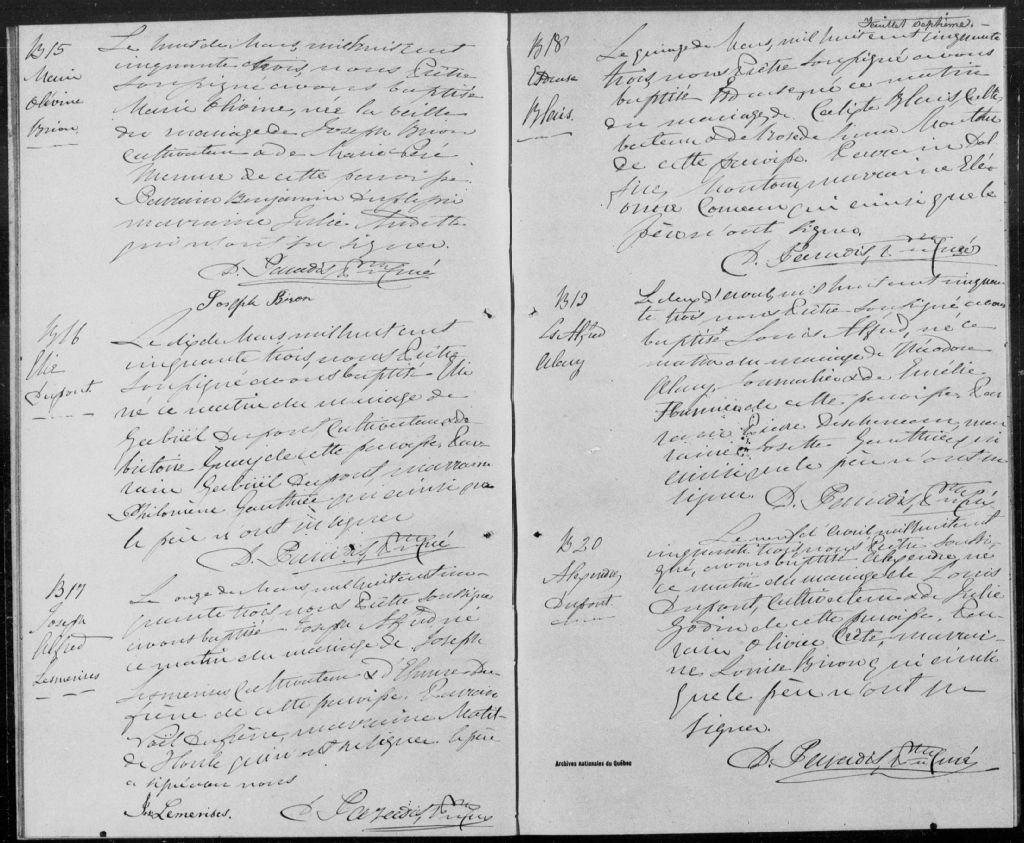 B15
Marie
Olivine
Biron
Le huit de Mars, mil huit cent
cinquante trois, nous Prêtre
soussigné avons baptisé
Marie Olivine, née la veille
du mariage de Joseph Biron
Cultivateur & de Marie
Mesure de cette paroisse.
Parrain Benjamin Duplessi
marraine Julie Audette
qui n'ont su signer.
D. Paradis, Ptre Curé
Joseph Biron
B16
Elie
Dupont
Le dix de Mars mil huit cent
cinquante trois, nous Prêtre
soussigné avons baptisé Elie
né ce matin du mariage de
Gabriël Dupont Cultivateur & de
Victoire Guay de cette paroisse. Par-
rain Gabriël Dupont, marraine
Philomène Gauthier qui ainsi que
le père n'ont su signer
D. Paradis, Ptre Curé
B17
Joseph
Alfred
Lesmerises
Le onze de Mars, mil huit cent cin-
quante trois nous Prêtre soussigné
avons baptisé Joseph Alfred né
ce matin du mariage de Joseph
Lesmerises Cultivateur & d'Elmire Du-
frène de cette paroisse. Parrain
Noël Dufrène, marraine Matil-
de Houle qui n'ont su signer. le père
a signé avec nous
Jos Lemerises.
D. Paradis, Ptre Curé
Feuillet septième. -
B18
Edouse
Blais.
Le quinze de Mars, mil huit cent cinquante
trois, nous Prêtre soussigné avons
baptisé né ce matin
du mariage de Calixte Blais Culti-
vateur & de Rose de Lima Mouton
de cette paroisse. Parrain Del
fine Mouton, marraine Eléo-
onore Comeau qui ainsi que le
père n'ont signé.
D. Paradis, Ptre Curé
B19
Ls Alfred
Alary
Le deux d'avril, mil huit cent cinquan-
te trois, nous Prêtre soussigné avons
baptisé Louis Alfred, né ce
matin du mariage de Théodore
Alary, Journalier & de Emélie
Fournier de cette paroisse. Par-
rain Pierre Descheneau, mar-
raine Josette Gauthier qui
ainsi que le père n'ont su
signer. D. Paradis, Ptre Curé
B20
Alexandre
Dupont
Le neuf d'avril mil huit cent
cinquante trois nous Prêtre soussi-
gné, avons baptisé Alexandre, né
ce matin du mariage de Louis
Dupont, Cultivateur & de Julie
Godin de cette paroisse. Par-
rain Olivier Crête, marrai-
ne Louise Biron, qui ainsi
que le père n'ont su
signer.
D. Paradis, Ptre Curé
Archives nationales du Québec